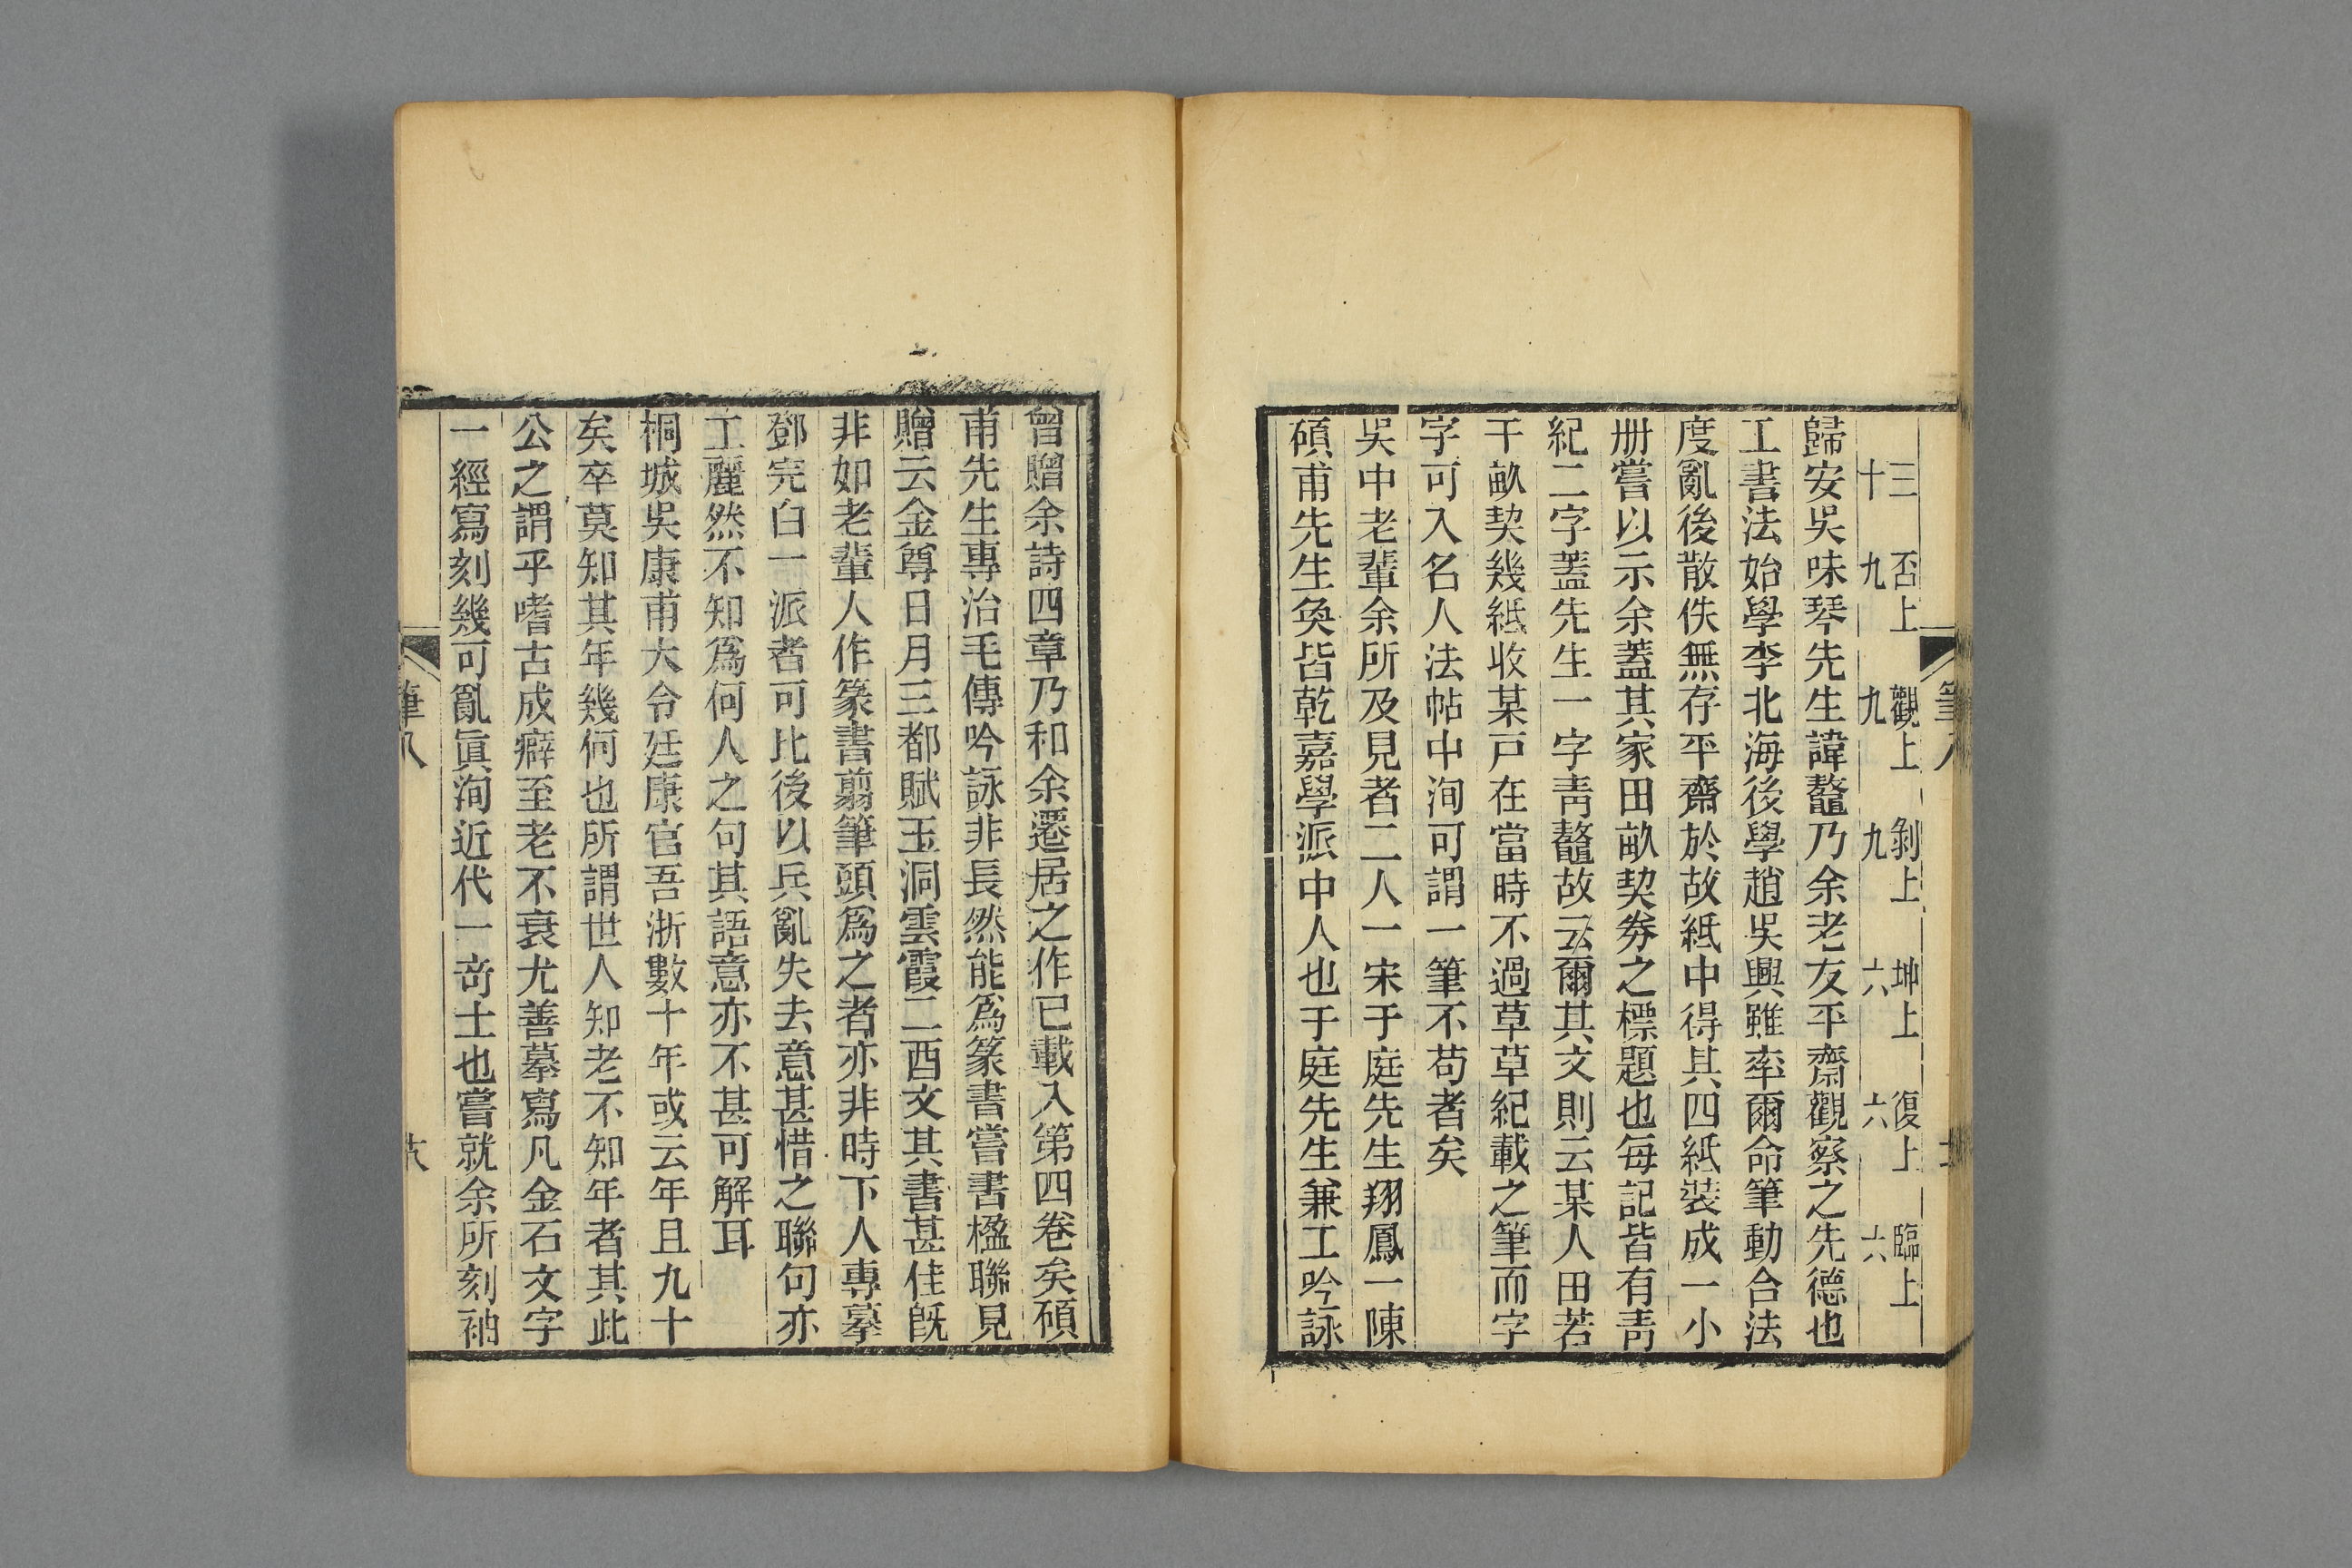 三 否上 觀上 剝上 坤上 復上 臨上
十 九 九 九 六 六 六
歸安吳味琴先生諱鼇乃余老友平齋觀察之先德也
工書法始學李北海後學趙吳興雖率爾命筆動合法
度亂後散佚無存平齋於故紙中得其四紙裝成一小
册嘗以示余蓋其家田畝契券之標題也每記皆有靑
紀二字蓋先生一字靑鼇故云爾其文則云某人田若
干畝契幾紙收某戸在當時不過草草紀載之筆而字
字可入名人法帖中洵可謂一筆不苟者矣
吳中老輩余所及見者二人一宋于庭先生翔鳳一陳
碩甫先生奐皆乾嘉學派中人也于庭先生兼工吟詠
曾贈余詩四章乃和余遷居之作已載入第四卷矣碩
甫先生專治毛傳吟詠非長然能爲篆書嘗書楹聯見
贈云金尊日月三都賦玉洞雲霞二酉文其書甚佳旣
非如老輩人作篆書翦筆頭爲之者亦非時下人專摹
鄧完白一派者可比後以兵亂失去意甚惜之聯句亦
工麗然不知爲何人之句其語意亦不甚可解耳
桐城吳康甫大令廷康官吾浙數十年或云年且九十
矣卒莫知其年幾何也所謂世人知老不知年者其此
公之謂乎嗜古成癖至老不衰尤善摹寫凡金石文字
一經寫刻幾可亂眞洵近代一奇士也嘗就余所刻袖
筆八